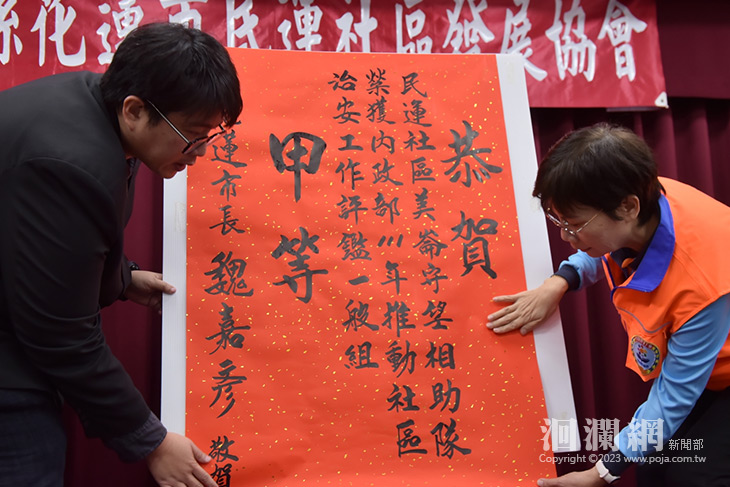 縣花蓮市民運社區發展協會
恭賀
民運社區美崙守望相助隊
榮獲內政部111年推動社區
治安工作評鑑一般組
甲等
蓮市長 魏嘉彥 敬賀
洄瀾網 新聞部
Copyright ©2023 www.poja.com.tw